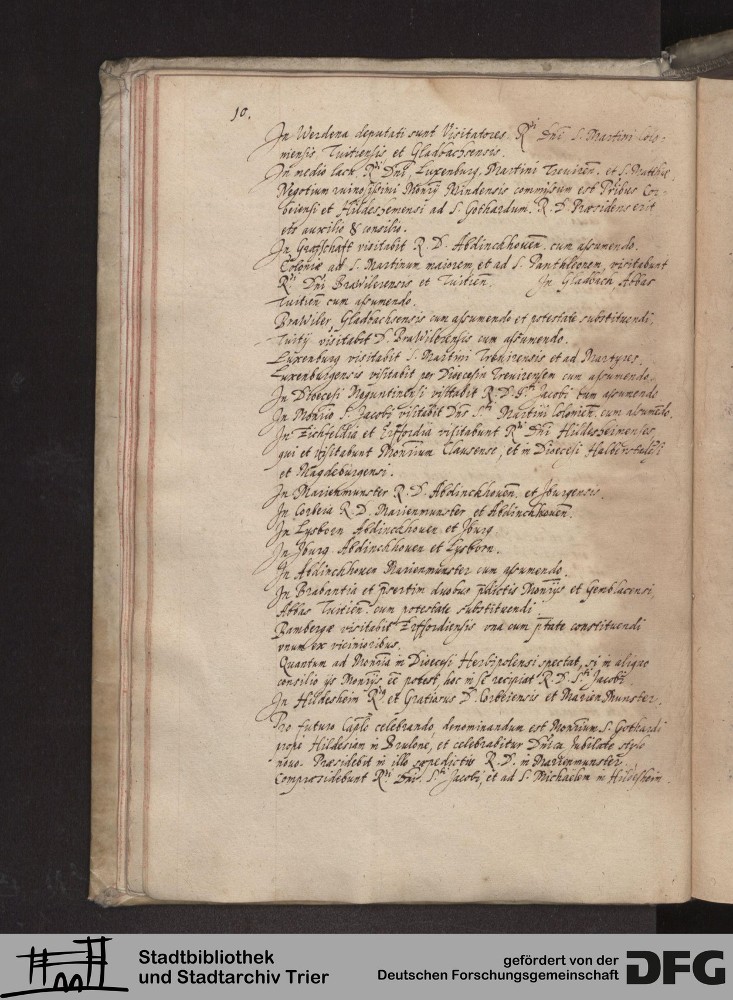 10.
In Werdena deputati sunt Visitatores R.di Dni S. Martini Colo-
niensis, Tuitiensis et Gladbachsensis.
In medio lach, R.di Dni, Luxenburg, Martini Treuiren̄. et S. Matthię
Negotium ruinosissimi Monrij Mindensis commissum est Pribus Cor-
beiensi et Hildeshemensi ad S. Gothardum. R. D. Præsidens erit
eis auxilio & consilio.
In Grafschaft visitabit R. D. Abdinckhouen̄ cum assumendo.
Coloniæ ad S. Martinum maiorem et ad S. Panthleonem, visitabunt
R.di Dni Brawilerensis et Tuitien̄. In Gladbach Abbas
Tuitien̄ cum assumendo.
Brawiler, Gladbachsensis cum assumendo et potestate substituendi.
Tuitij visitabit D. Brawilerensis cum assumendo.
Luxenburg visitabit S. Martini Treuirensis et ad Martyres.
Luxenburgensis visitabit per Diocesin Treuirensem cum assumendo.
In Diocesi Moguntinensi visitabit R. D. S.ti Jacobi cum assumendo
In Monrio S. Jacobi visitabit Dns S.ti Martini Colonien̄. cum assumēdo.
In Eichfeldia et Erffordia visitabunt R.di Dni Hildesheimenses
qui et visitabunt Monrium Clausense, et in Diocesi Halberstadesi
et Magdeburgensi.
In Marienmunster R. D. Abdinckhouen̄, et Iburgensis.
In Corbeia R. D. Marienmunster et Abdinckhouen̄.
In Lysborn Abdinckhouen et Iburg.
In Iburg Abdinckhouen et Lysborn.
In Abdinckhouen Marienmunster cum assumendo.
In Brabantia et p̄sertim duobus p̄dictis Monrijs et Gemblacensi
Abbas Tuitien̄. cum potestate substituendi
Bambergæ visitabit Erffordiensis vna cum p̄tate constituendi
vnum ex vicinioribus.
Quantum ad Monria in Diocesi Herbipolensi spectat, si in aliquo
consilio ijs Monrijs eē potest, hoc in sē recipiat R. D. S.ti Jacobi.
In Hildesheim R.dus et Gratiosus D. Corbeiensis et Marien Munster.
Pro futuro Caplo celebrando, denominandum est Monrium S. Gothardi
prope Hildesiam in Brulone, et celebrabitur Dnica Jubilate stylo
nouo. Præsidebit in illo præedictus R. D. in Marienmunster.
Compræsidebunt R.di Dni S.ti Jacobi, et ad S. Michaelem in Hildesheim.
Stadtbibliothek
und Stadtarchiv Trier
gefördert von der
Deutschen Forschungsgemeinschaft
DFG